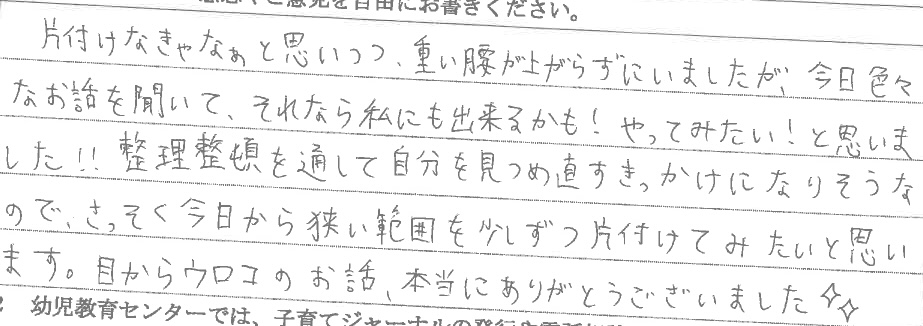 ご意見を自由にお書きください。
片付けなきゃなぁと思いつつ、重い腰が上がらずにいましたが、今日色々
なお話を聞いて、それなら私にも出来るかも！やってみたい！と思いま
した!!整理整頓を通して自分を見つめ直すきっかけになりそうな
ので、さっそく今日から狭い範囲を少しずつ片付けてみたいと思い
ます。目からウロコのお話、本当にありがとうございました✧✧
幼児教育センターでは、子育てジャーナルの発行や